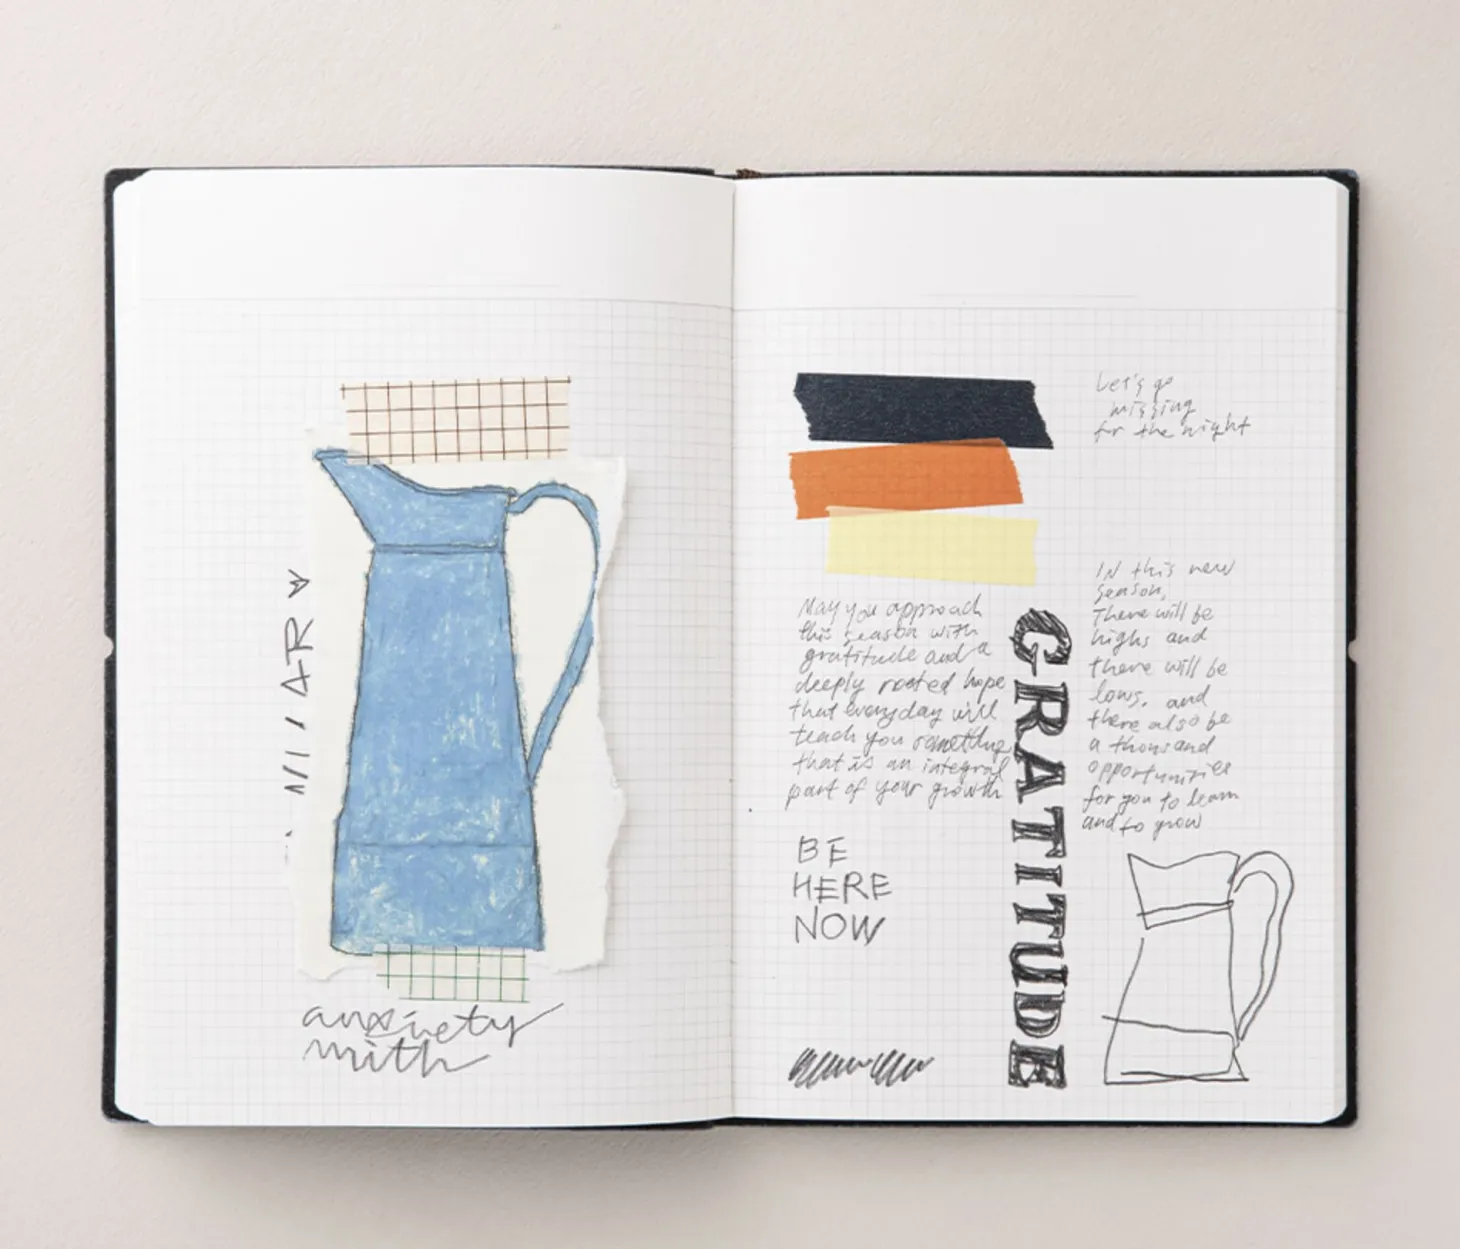 anxiety
with
Let's go
missing
for the night
May you approach
this season with
gratitude and a
deeply rooted hope
that everyday will
teach you something
that is an integral
part of your growth
BE
HERE
NOW
GRATITUDE
IN this new
season,
There will be
highs and
there will be
lows, and
there also be
a thousand
opportunities
for you to learn
and to grow